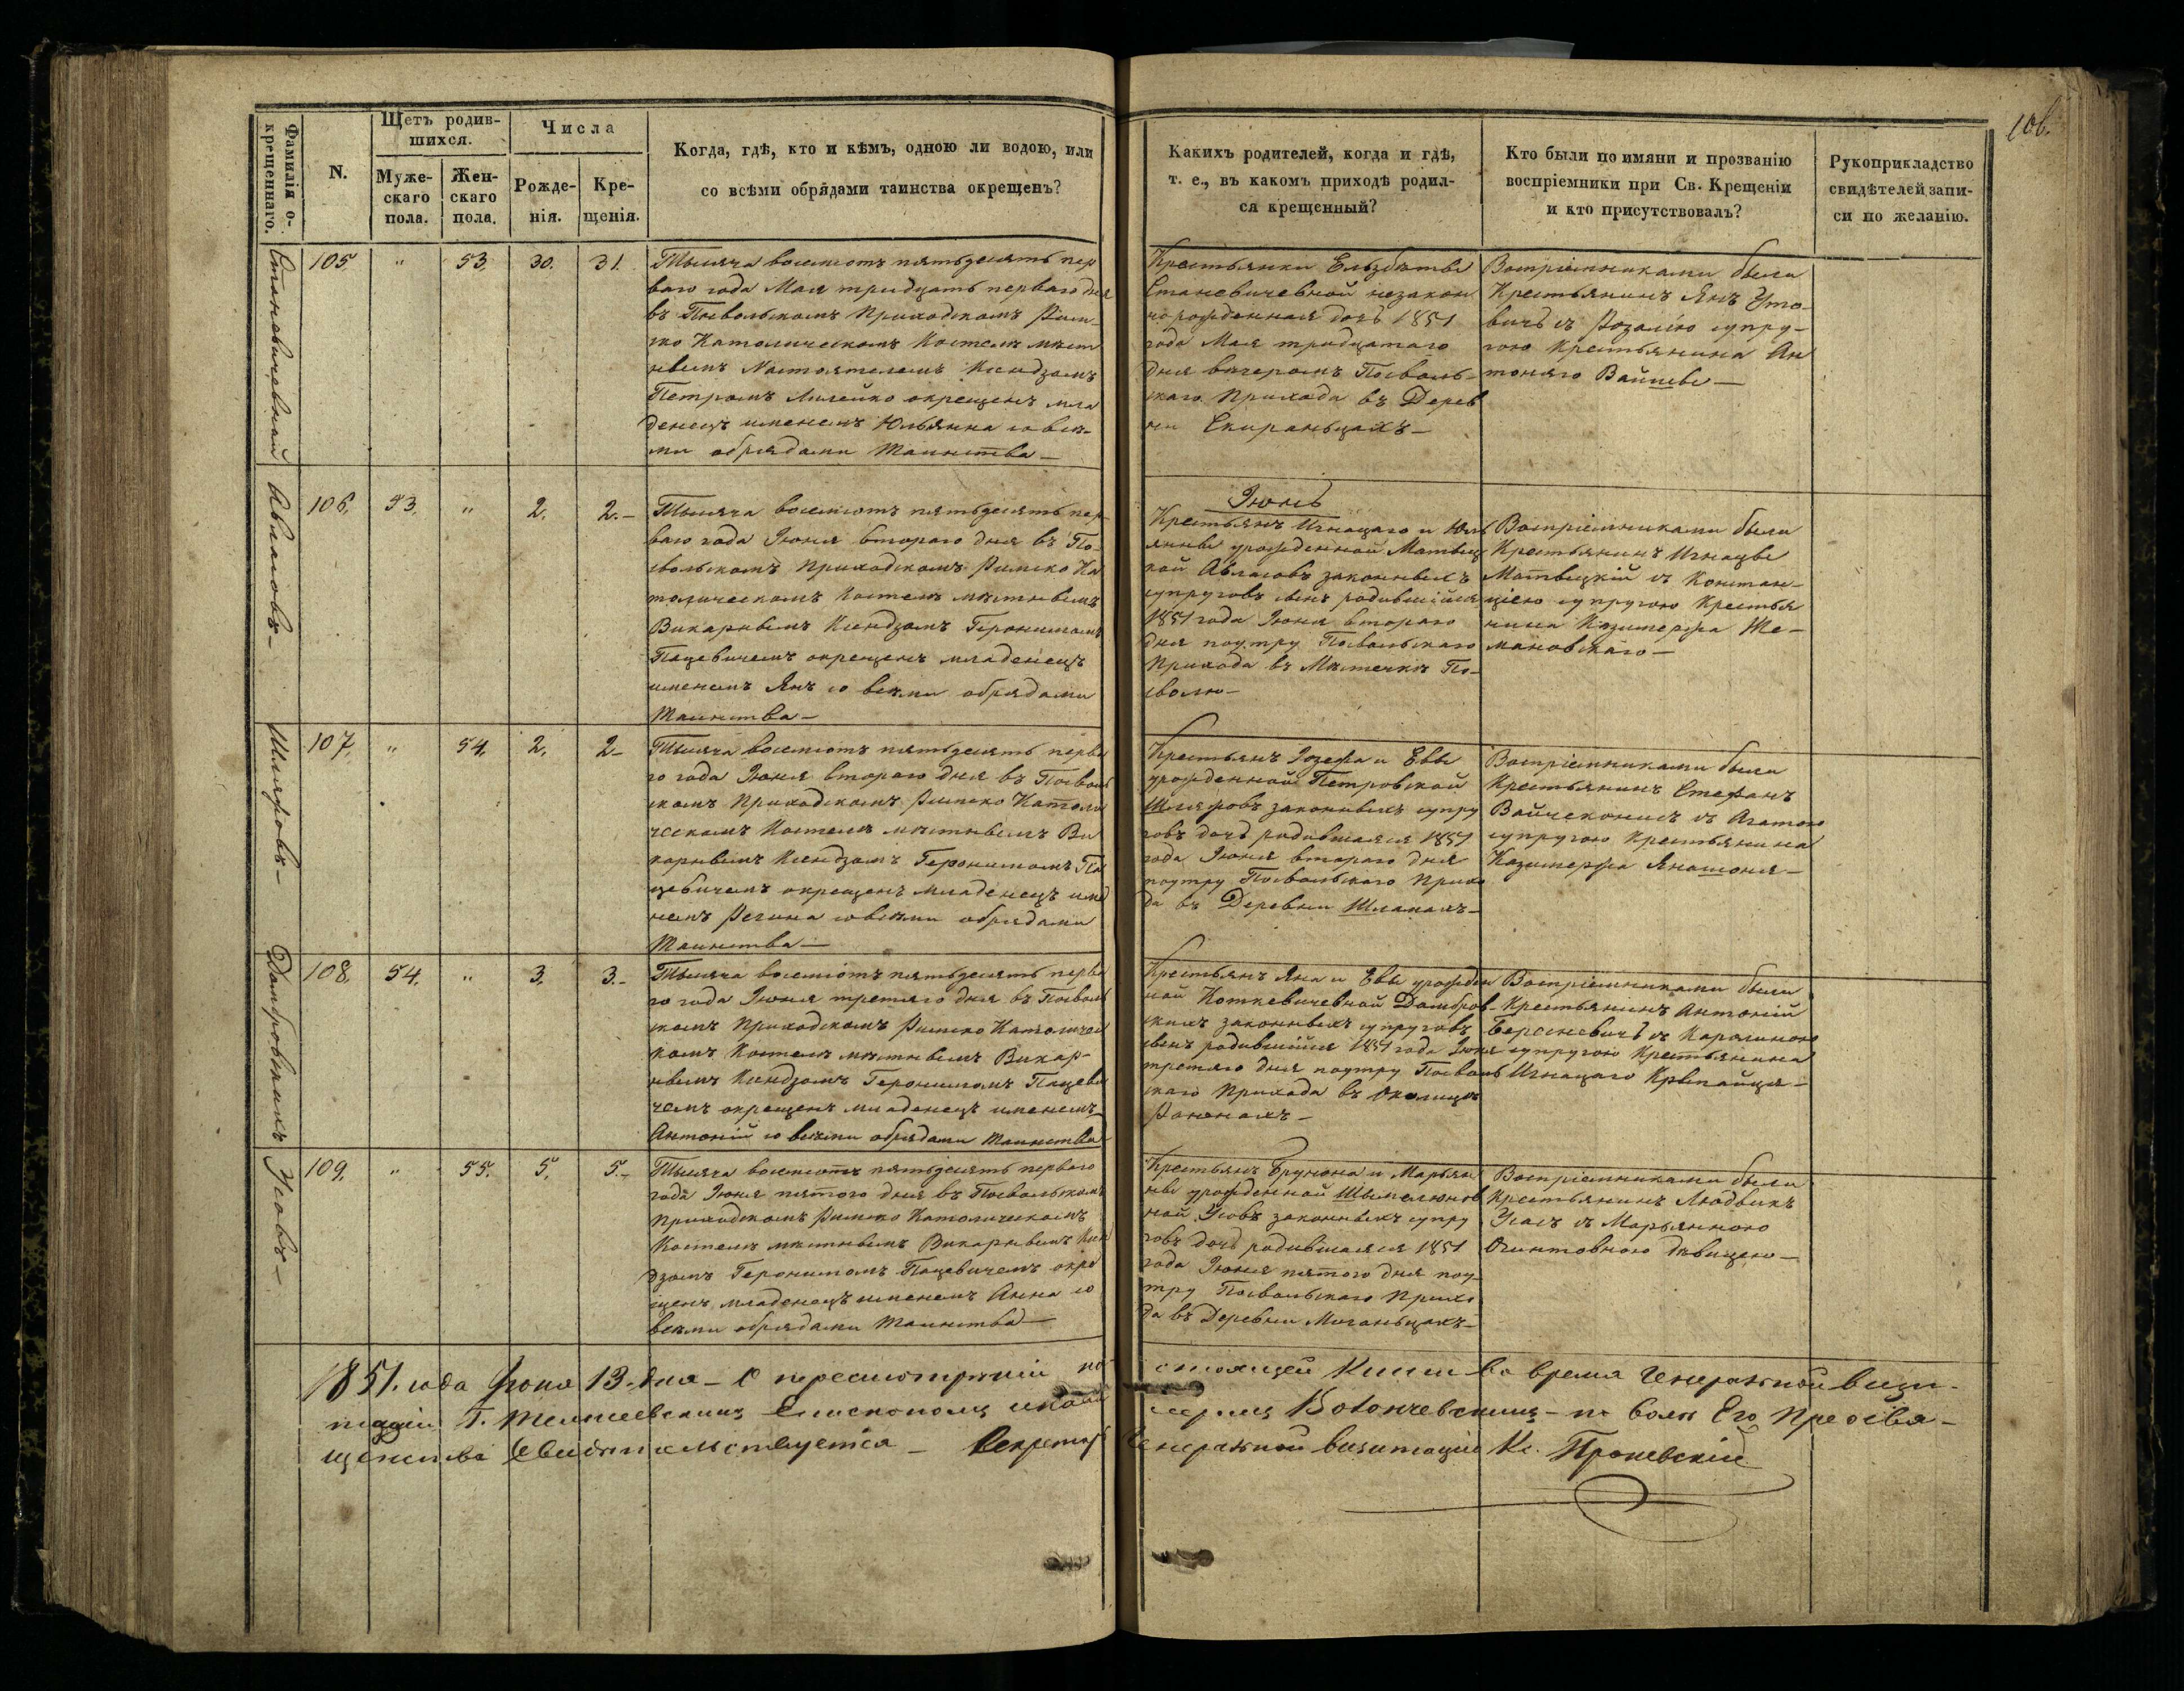 106.
Фамилія о-
крещеннаго.
N.
Щетъ родив-
шихся.
Муже-
скаго
пола.
Жен-
скаго
пола.
Числа
Рожде-
нія.
Кре-
щенія.
Когда, гдѣ, кто и кѣмъ, одною ли водою, или
со всѣми обрядами таинства окрещенъ?
Какихъ родителей, когда и гдѣ,
т. е., въ какомъ приходѣ родил-
ся крещенный?
Кто были по имяни и прозванію
воспріемники при Св. Крещеніи
и кто присутствовалъ?
Рукоприкладство
свидѣтелей запи-
си по желанію.
Станевичевной
105. " 53. 30. 31.
Тысяча восемсотъ пятьдесятъ пер
ваго года Мая тридцать перваго дня
въ Посвольскомъ Приходскомъ Рим-
ско Католическомъ Костелѣ мѣст
нымъ Настоятелемъ Ксендзомъ
Петромъ окрещенъ мла
денецъ именемъ Юльянна со всѣ-
ми обрядами Таинства —
Крестьянки Ельзбеты
Станевичевной незакон
но рожденная дочь 1851
года Мая тридцатаго
дня вечеромъ Посволь-
скаго Прихода въ Дерев
ни Скираньцахъ —
Воспріемниками были
Крестьянинъ Янъ Уто-
вичъ съ Розалію супру-
гою Крестьянина Ан
тоняго —
Авласовъ —
106. 53. " 2. 2. —
Тысяча восемсотъ пятьдесятъ пер-
ваго года Іюня втораго дня въ По-
свольскомъ Приходскомъ Римско Ка
толическомъ Костелѣ мѣстнымъ
Викарнымъ Ксендзомъ Геронимомъ
Пацевичемъ окрещенъ младенецъ
именемъ Янъ со всѣми обрядами
Таинства —
Іюнь
Крестьянъ Игнацаго и Юль
янны урожденной Матвиц
кой Авласовъ законныхъ
супруговъ сынъ родившійся
1851 года Іюня втораго
дня поутру Посвольскаго
Прихода въ Мѣстечкѣ По-
сволю —
Воспріемниками были
Крестьянинъ Игнацы
Матвицкій съ Констан-
ціею супругою Крестья
нина Казимержа Же-
мановскаго —
Шляфовъ —
107. " 54. 2. 2 —
Тысяча восемсотъ пятьдесятъ перва
го года Іюня втораго дня въ Посволь
скомъ Приходскомъ Римско Католи
ческомъ Костелѣ мѣстнымъ Ви
карнымъ Ксендзомъ Геронимомъ Па
цевичемъ окрещенъ младенецъ име
немъ Регина со всѣми обрядами
Таинства —
Крестьянъ Іозефа и Евы
урожденной Петровской
Шляфовъ законныхъ супру
говъ дочь родившаяся 1851
года Іюня втораго дня
поутру Посвольскаго Прихо
да въ Деревни —
Воспріемниками были
Крестьянинъ Стефанъ
съ Агатою
супругою Крестьянина
Казимержа Янашоня —
Домбровскихъ
108. 54. " 3. 3. —
Тысяча восемсотъ пятьдесятъ перва
го года Іюня третяго дня въ Посволь
скомъ Приходскомъ Римско Католичес
комъ Костелѣ мѣстнымъ Викар-
нымъ Ксендзомъ Геронимомъ Пацеви
чемъ окрещенъ младенецъ именемъ
Антоній со всѣми обрядами Таинства
Крестьянъ Яна и Евы урожден
ной Коткевичевной Домбров-
скихъ законныхъ супруговъ
сынъ родившійся 1851 года Іюня
третяго дня поутру Посволь
скаго Прихода въ Околицѣ
—
Воспріемниками были
Крестьянинъ Антоній
съ Каролиною
супругою Крестьянина
Игнацаго —
Усовъ —
109. " 55. 5. 5. —
Тысяча восемсотъ пятьдесятъ перваго
года Іюня пятого дня въ Посвольскомъ
Приходскомъ Римско Католическомъ
Костелѣ мѣстнымъ Викарнымъ Ксен
дзомъ Геронимомъ Пацевичемъ окре
щенъ младенецъ именемъ Анна со
всѣми обрядами Таинства —
Крестьянъ Брунона и Марьян
ны урожденной Шымелюнов
ной Усовъ законныхъ супру
говъ дочь родившаяся 1851
года Іюня пятого дня поу-
тру Посвольскаго Прихо
да въ Деревни Миганьцахъ —
Воспріемниками были
Крестьянинъ Людвикъ
Усасъ съ Марьянною
Огинтовною дѣвицею —
1851. года Іюня 13. дня — О пересмотрѣніи на-стоящей Книги во время Генеральной визи-
тацціи Г. Тельшевскимъ Епископомъ Волончевскимъ — по волѣ Его Преосвя-
щенства Свидѣтельствуется — Секретарь Генеральной визитаціи Кс. Проневскій